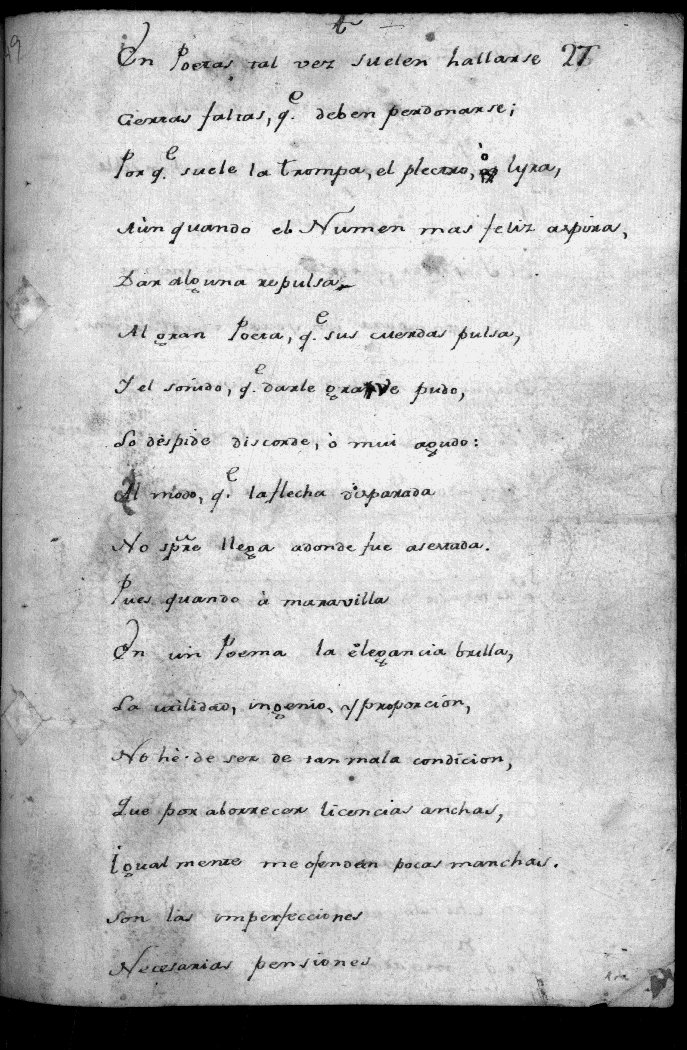 27
En Poetas tal vez suelen hallarse
Ciertas faltas, q.e deben perdonarse;
Por q.e suele la trompa, el plectro, ò lyra,
Aùn quando el Numen mas feliz aspira,
Dar alguna repulsa
Al gran Poeta, q.e sus cuerdas pulsa,
Y el sonido, q.e darle grave pudo,
Lo dèspide discorde, ò mui agudo:
Al modo, q.e la flecha disparada
No spre llega adonde fue asertada.
Pues quando à maravilla
En un Poema la elegancia brilla,
La utilidad, ingenio, y proporcion,
No hè de ser de tan mala condicion,
Que por aborrecer licencias anchas,
Igualmente me ofendan pocas manchas.
Son las imperfecciones
Necesarias pensiones